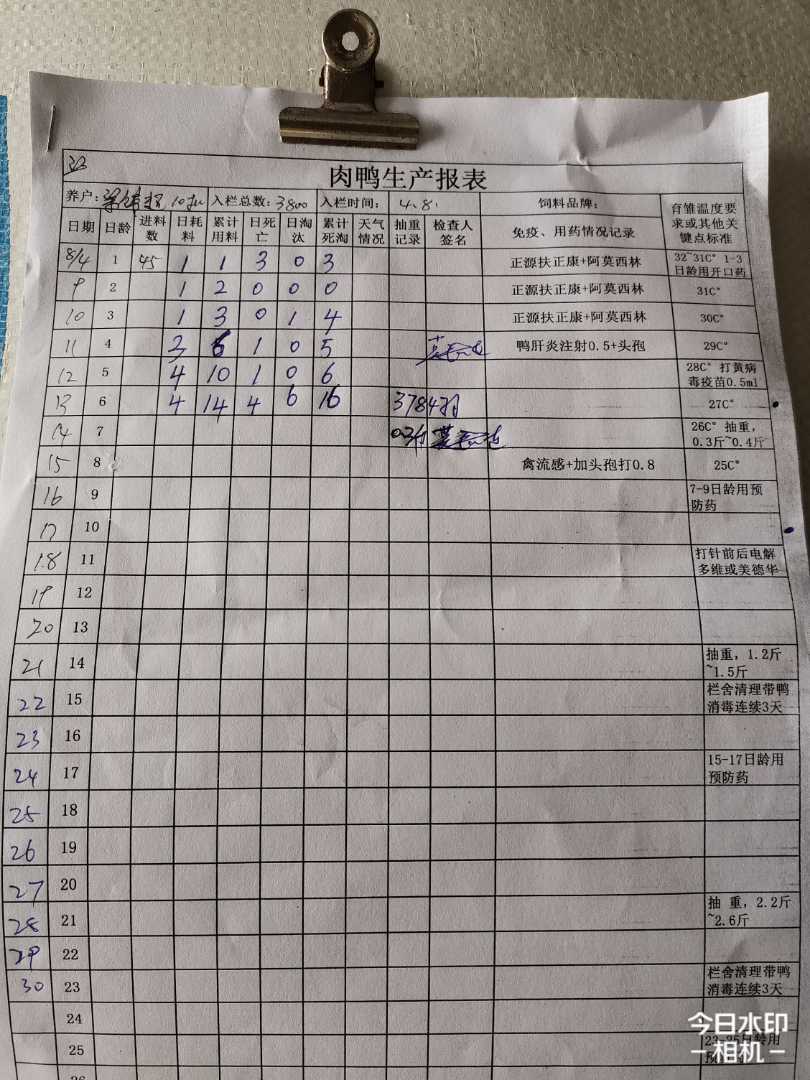 33
肉鸭生产报表
养户: 入栏总数:3800 入栏时间: 4.8. 饲料品牌: 育雏温度要求或其他关键点标准
日期 日龄 进料数 日耗料 累计用料 日死亡 日淘汰 累计死淘 天气情况 抽重记录 检查人签名 免疫、用药情况记录
8/4 1 45 1 1 3 0 3 正源扶正康+阿莫西林 32~31C° 1-3日龄用开口药
9 2 1 2 0 0 0 正源扶正康+阿莫西林 31C°
10 3 1 3 0 1 4 正源扶正康+阿莫西林 30C°
11 4 3 6 1 0 5 鸭肝炎注射0.5+头孢 29C°
12 5 4 10 1 0 6 28C° 打黄病毒疫苗0.5ml
13 6 4 14 4 6 16 3784羽 27C°
14 7 26C° 抽重，0.3斤~0.4斤
15 8 禽流感+加头孢打0.8 25C°
16 9 7-9日龄用预防药
17 10
18 11 打针前后电解多维或美德华
19 12
20 13
21 14 抽重，1.2斤~1.5斤
22 15 栏舍清理带鸭消毒连续3天
23 16
24 17 15-17日龄用预防药
25 18
26 19
27 20
28 21 抽 重，2.2斤~2.6斤
29 22
30 23 栏舍清理带鸭消毒连续3天
24
25 23-25日龄用
今日水印
相机